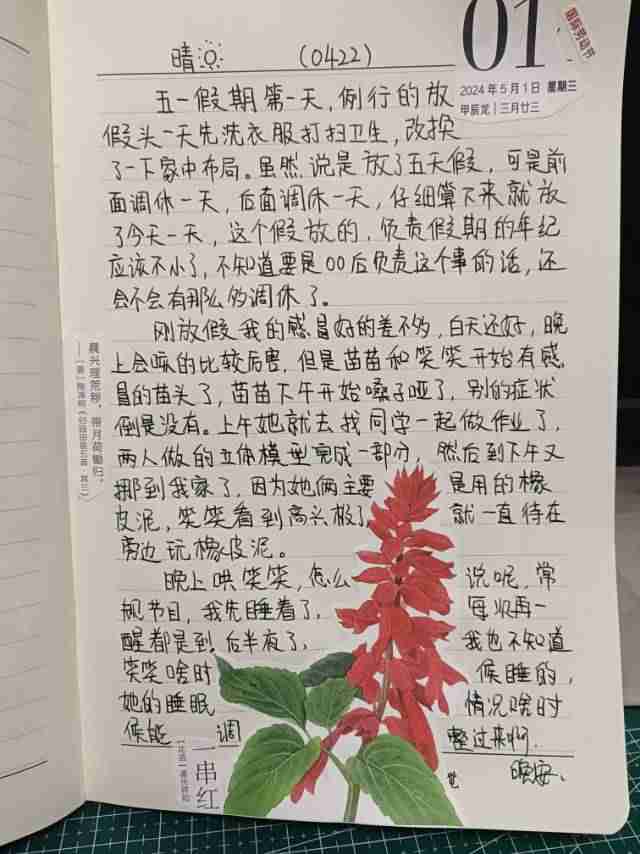 晴 （0422）
01
国际劳动节
2024年5月1日 星期三
甲辰龙｜三月廿三
五一假期第一天，例行的放
假头一天先洗衣服打扫卫生，改换
了一下家中布局。虽然说是放了五天假，可是前
面调休一天，后面调休一天，仔细算下来就放
了今天一天，这个假放的，负责假期的年纪
应该不小了，不知道要是00后负责这个事的话，还
会不会有那么多调休了。
刚放假我的感冒好的差不多，白天还好，晚
上会咳的比较厉害，但是苗苗和笑笑开始有感
冒的苗头了，苗苗下午开始嗓子哑了，别的症状
倒是没有。上午她就去找同学一起做作业了，
两人做的立体模型完成一部分，然后到下午又
挪到我家了，因为她俩主要是用的橡
皮泥，笑笑看到高兴极了，就一直待在
旁边玩橡皮泥。
晚上哄笑笑，怎么说呢，常
规节目，我先睡着了，每次再一
醒都是到后半夜了，我也不知道
笑笑啥时候睡的，
她的睡眠情况啥时
候能调整过来啊。
晚安、
晨兴理荒秽，带月荷锄归。
一串红